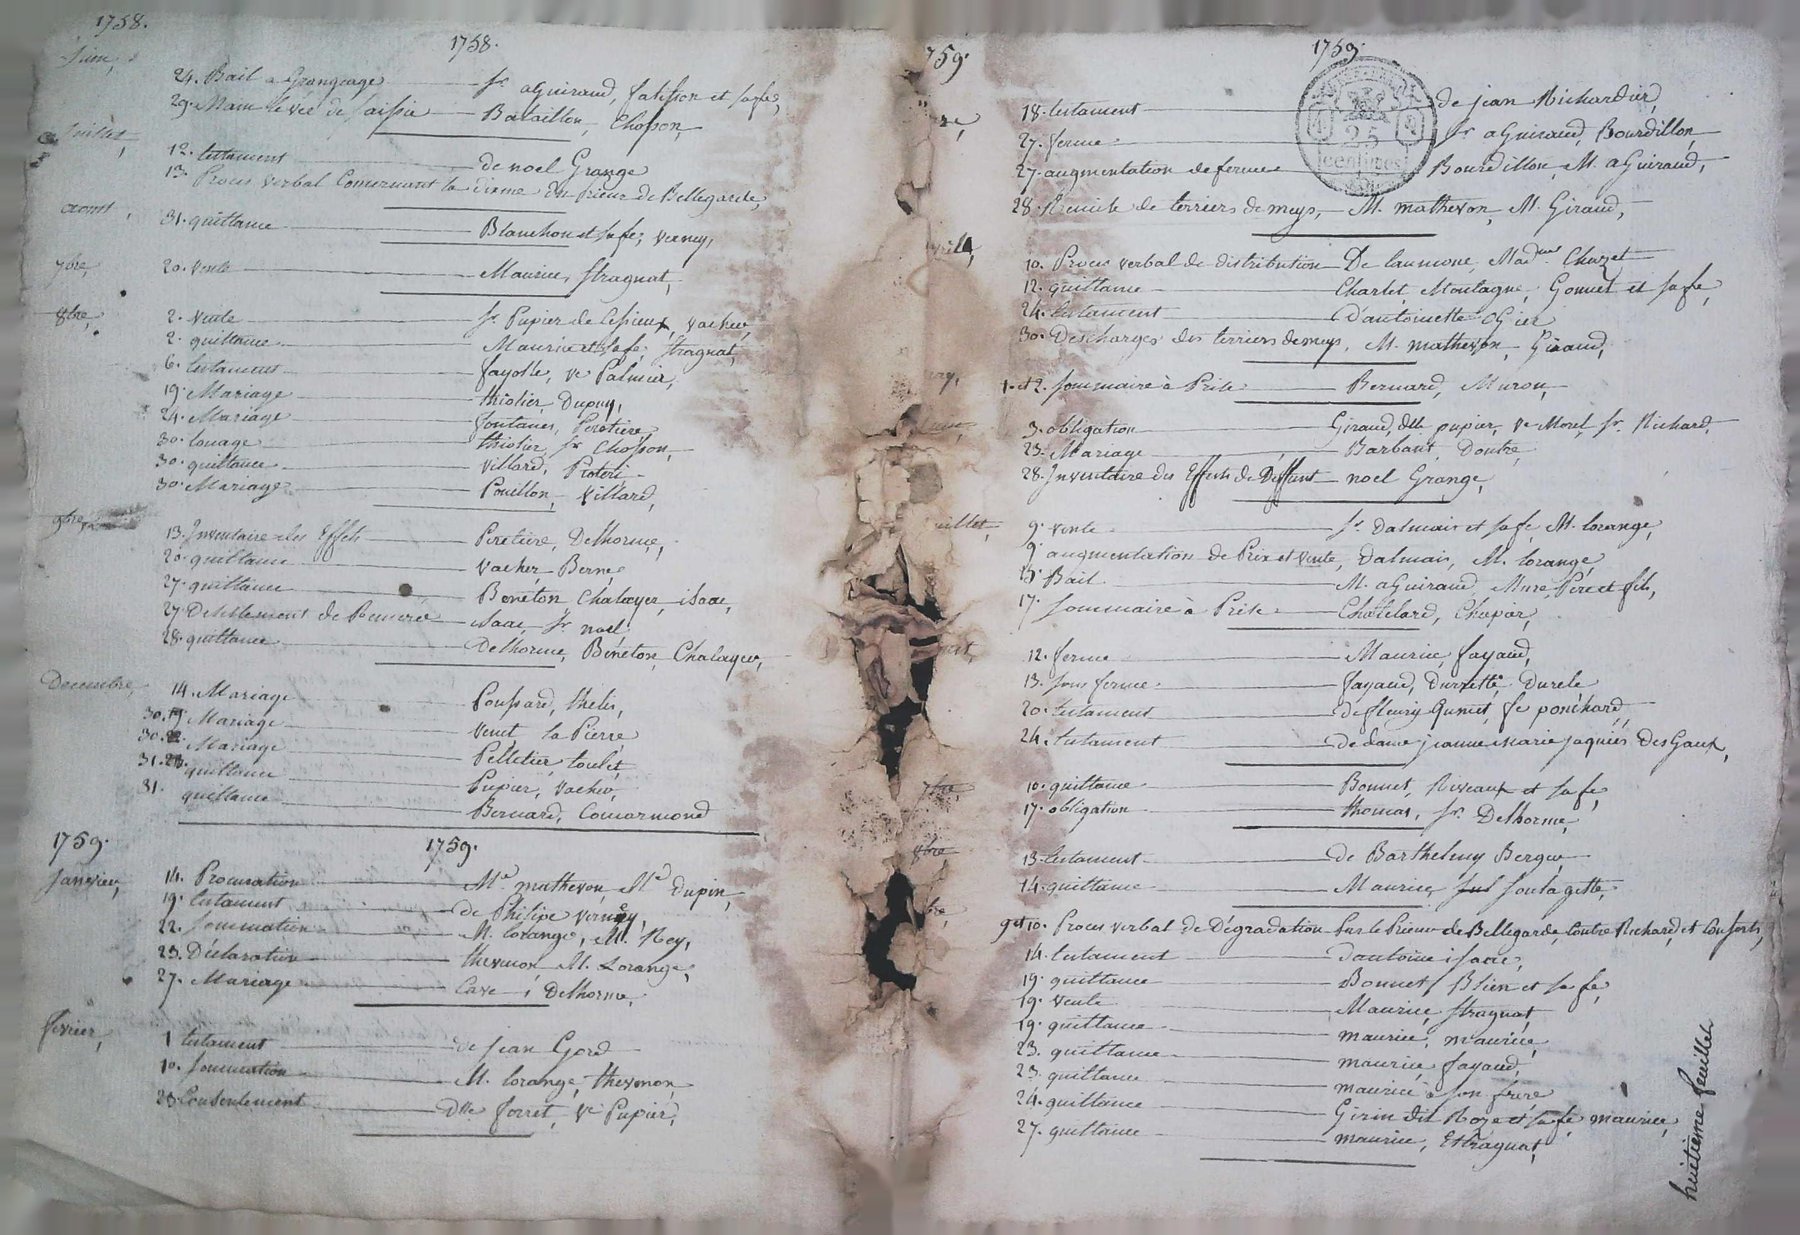 1758.
1758.
24. Bail a Grangeage — Sr. aGuiraud, et sa fe,
29. Main levée de Saisie — Bataillon, Chosson,
12. testament — de noel Grange
13. Proces verbal Concernant la dixme du Prieur de Bellegarde,
aoust,
31. quittance — Blanchon et sa fe, verney,
7bre,
20. vente — Maurice, Stragnat,
8bre,
2. vente — Sr. Pupier de vacher,
2. quittance — Maurice et sa fe, Stragnat,
6. testament — fayolle, ve Palmier,
19. Mariage — thiolier, Dupuy,
24. Mariage — fontanes, Peretiere
30. louage — thiolier, Sr. Chosson,
30. quittance — villard,
30. Mariage — Pouillon, villard,
9bre,
13. Inventaire des Effets — Peretiere, Delhorme,
20. quittance — vacher, Berne
27. quittance — Beneton, Chalayer, isaac,
27. Desistement de — isaac, Sr. noel
28. quittance — Delhorme, Beneton, Chalayer,
Decembre,
14. Mariage — Poussard, thelis,
30. Mariage — venet, la Pierre
30. Mariage — Pelletier, toulet,
31. quittance — Pupier, vacher,
31. quittance — Bernard, Comarmond
1759.
1759.
Janvier,
14. Procuration — Me. mathevon, Me. dupin,
19. testament — de Philipe verney,
22. Sommation — M. lorange, M. Rey,
23. Déclaration — thevenon, M. Lorange,
27. Mariage — Cave, Delhorme,
février,
1 testament — de Jean Gord
10. Sommation — M. lorange, thevenon,
28. Consentement — Dlle forret, ve Pupier,
759.
1759.
25
centimes
18. testament — de jean Richardier,
27. ferme — Sr. aGuiraud, Bourdillon,
27. augmentation de ferme — Bourdillon, M. aGuiraud,
28. Remise de terriers de meys, — M. mathevon, M. Giraud,
10. Proces verbal de distribution — De laumone, Madme. Chazet
12. quittance — Charlet, Montagne, Gonnet et sa fe,
24. testament — d'antoinette Ogier
30. Descharges des terriers de meys, M. mathevon, Giraud,
1. et 2. Sommaire à Prise — Bernard, Muron,
3. obligation — Giraud, dlle pupier, ve Morel, Sr. Richard
23. Mariage — Barbant, Doutre,
28. Inventaire des Effets de Deffunt noel Grange,
9. vente — Sr. Dalmais et sa fe, M. lorange,
9. augmentation de Prix et vente, dalmais, M. lorange,
15. Bail — M. aGuiraud, Mure, Pere et fils,
17. Sommaire à Prise — Chatelard, Chapar,
12. ferme — Maurice, fayaud,
13. Sous ferme — fayaud, Durele
20. testament — de fleury fe ponchard,
24. testament — de dame jeanne marie jaquier Desgaux,
7bre,
10. quittance — Bonnet, Riveaux et sa fe,
17. obligation — thomas, Sr. Delhorme,
8bre,
13. testament — de Barthelemy Berger
14. quittance — Maurice, Soulagette,
bre,
9 et 10. Proces verbal de Dégradation sur le Prieur de Bellegarde, Contre Richard, et Consorts,
14. testament — d'antoine isaac,
19. quittance — Bonnet, Blein et sa fe,
19. vente — Maurice, Stragnat,
19. quittance — maurice, maurice,
23. quittance — maurice, fayaud,
23. quittance — maurice à son frere
24. quittance — Girin dit Roze et sa fe, maurice,
27. quittance — maurice, Estragnat,
huitieme feuillet